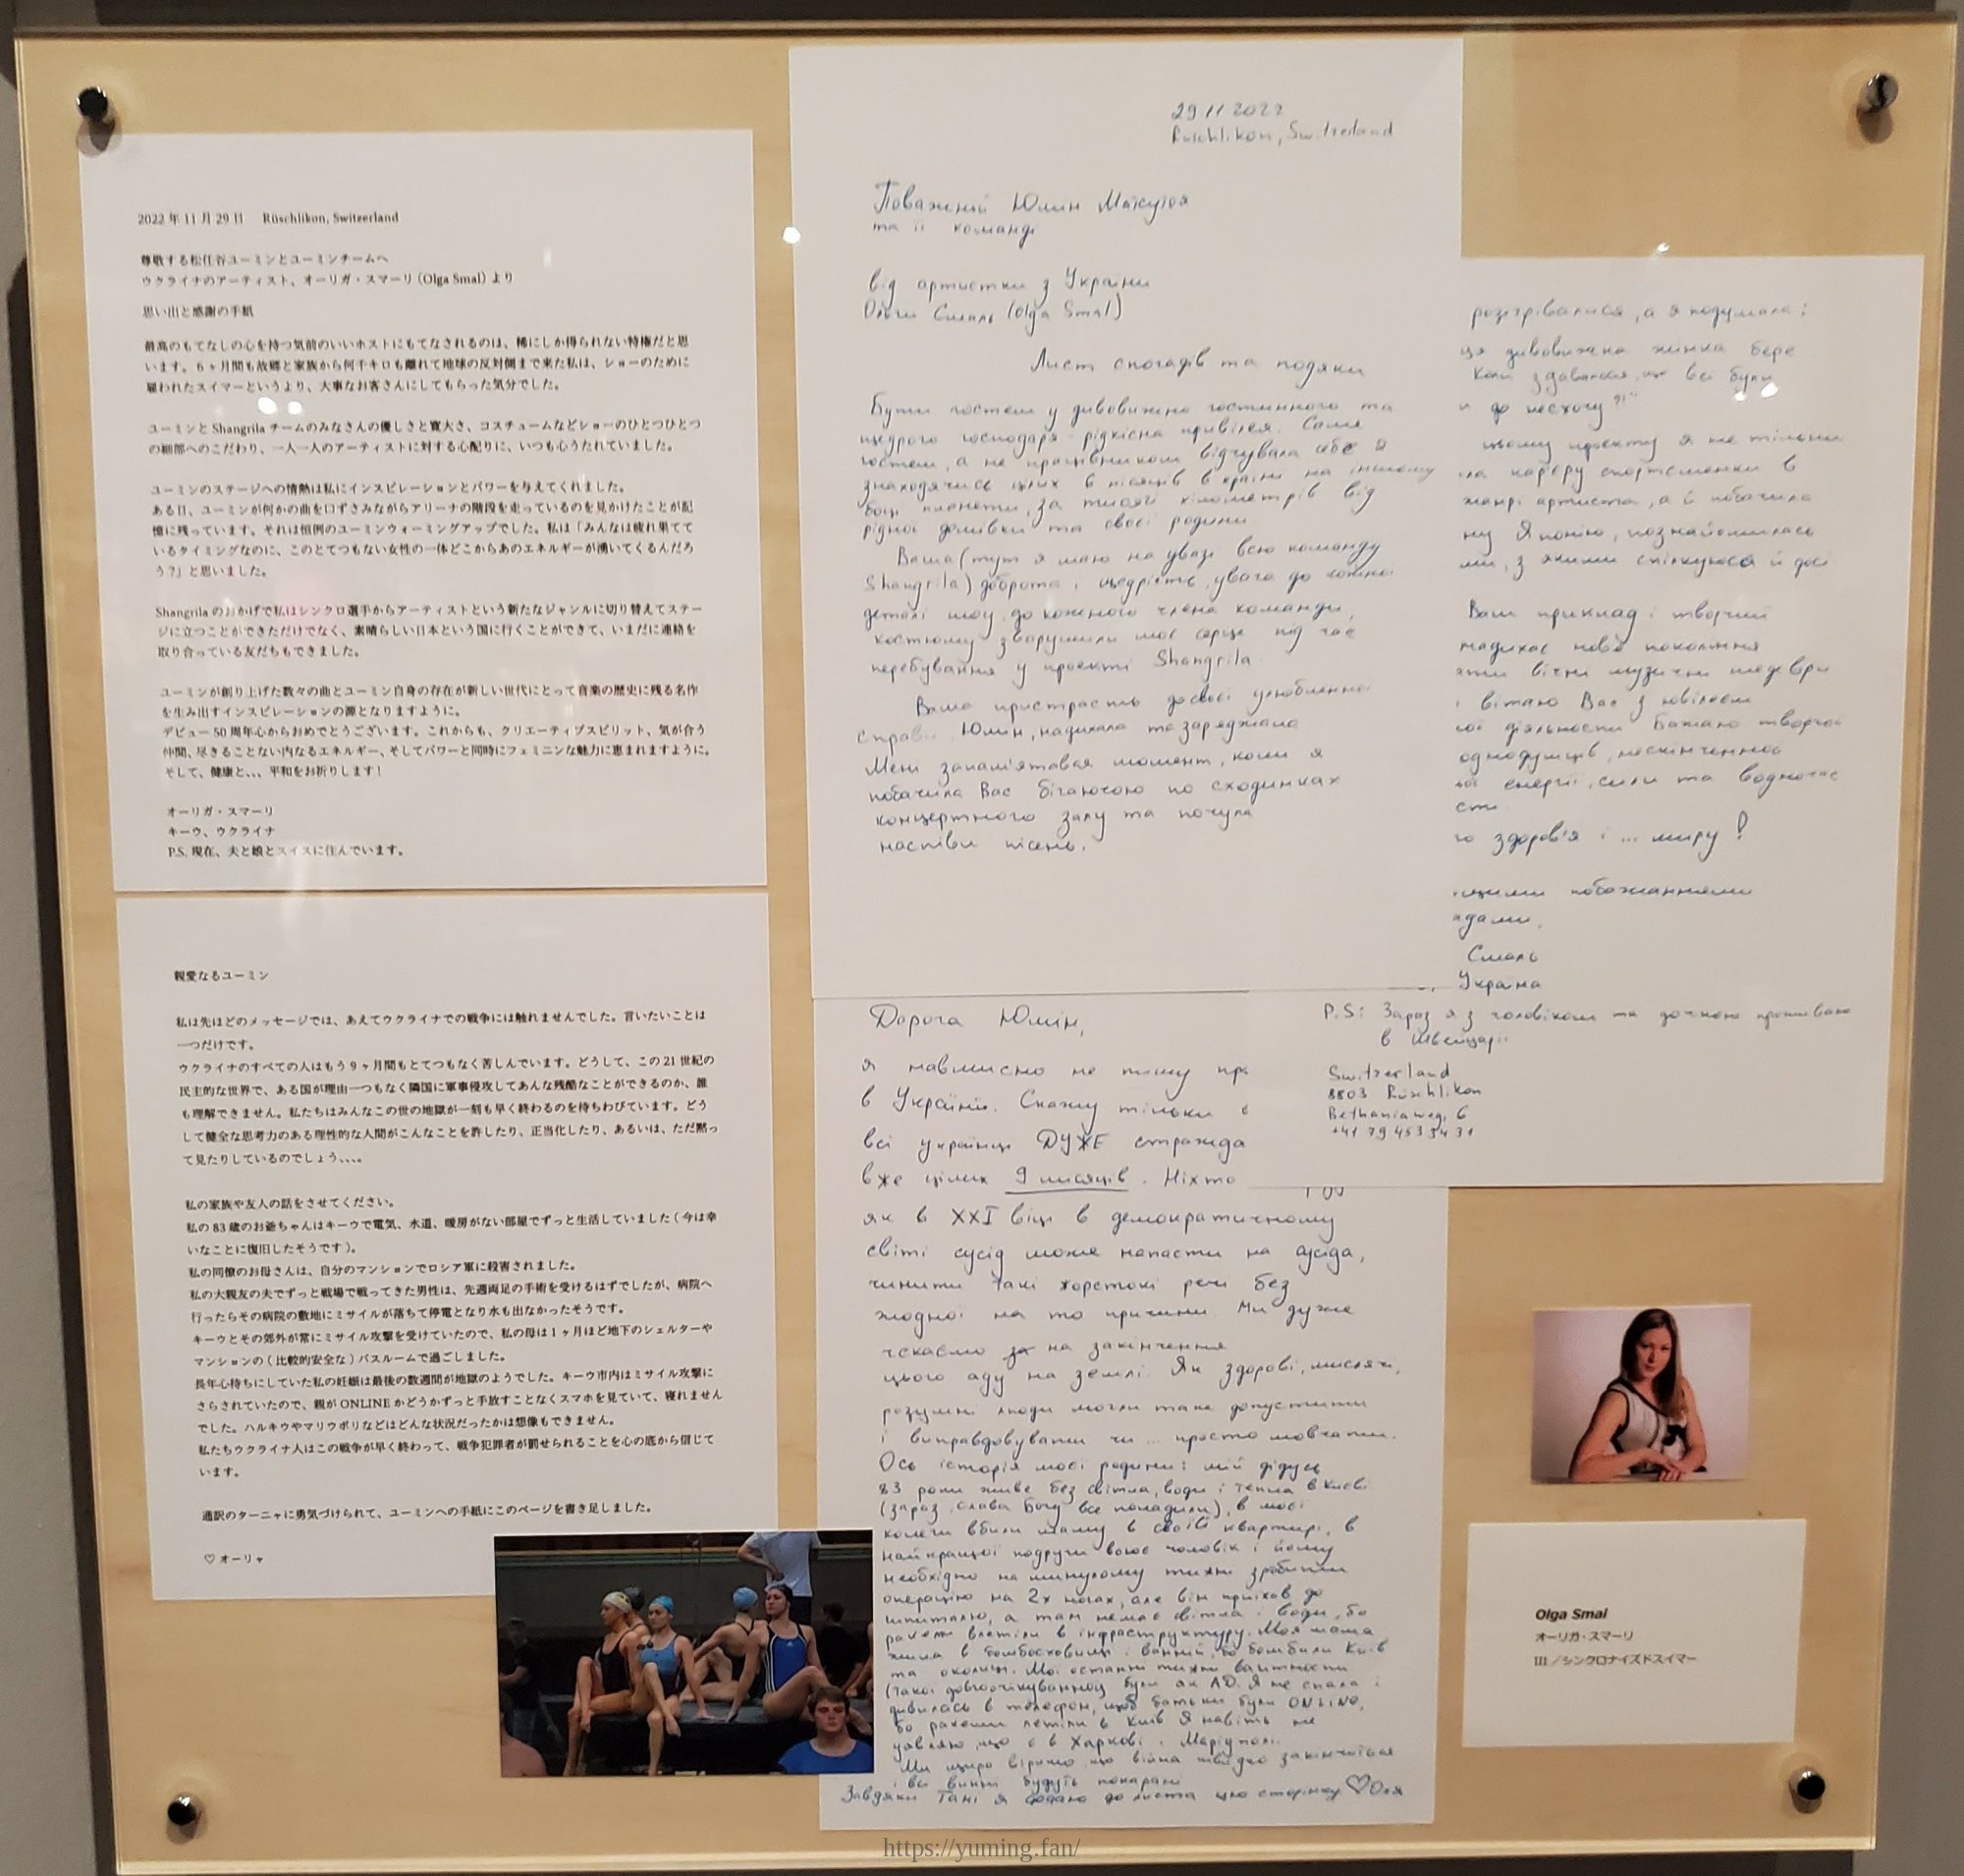 2022 年 11 月 29 日 Rüschlikon, Switzerland
尊敬する松任谷ユーミンとユーミンチームへ
ウクライナのアーティスト、オーリガ・スマーリ（Olga Smal）より
思い出と感謝の手紙
最高のもてなしの心を持つ気前のいいホストにもてなされるのは、稀にしか得られない特権だと思
います。6ヶ月間も故郷と家族から何千キロも離れて地球の反対側まで来た私は、ショーのために
雇われたスイマーというより、大事なお客さんにしてもらった気分でした。
ユーミンと Shangrila チームのみなさんの優しさと寛大さ、コスチュームなどショーのひとつひとつ
の細部へのこだわり、一人一人のアーティストに対する心配りに、いつも心うたれていました。
ユーミンのステージへの情熱は私にインスピレーションとパワーを与えてくれました。
ある日、ユーミンが何かの曲を口ずさみながらアリーナの階段を走っているのを見かけたことが記
憶に残っています。それは恒例のユーミンウォーミングアップでした。私は「みんなは疲れ果てて
いるタイミングなのに、このとてつもない女性の一体どこからあのエネルギーが湧いてくるんだろ
う？」と思いました。
Shangrila のおかげで私はシンクロ選手からアーティストという新たなジャンルに切り替えてステー
ジに立つことができただけでなく、素晴らしい日本という国に行くことができて、いまだに連絡を
取り合っている友だちもできました。
ユーミンが創り上げた数々の曲とユーミン自身の存在が新しい世代にとって音楽の歴史に残る名作
を生み出すインスピレーションの源となりますように。
デビュー 50 周年心からおめでとうございます。これからも、クリエーティブスピリット、気が合う
仲間、尽きることない内なるエネルギー、そしてパワーと同時にフェミニンな魅力に恵まれますように。
そして、健康と、、、平和をお祈りします！
オーリガ・スマーリ
キーウ、ウクライナ
P.S. 現在、夫と娘とスイスに住んでいます。
親愛なるユーミン
私は先ほどのメッセージでは、あえてウクライナでの戦争には触れませんでした。言いたいことは
一つだけです。
ウクライナのすべての人はもう 9ヶ月間もとてつもなく苦しんでいます。どうして、この 21 世紀の
民主的な世界で、ある国が理由一つもなく隣国に軍事侵攻してあんな残酷なことができるのか、誰
も理解できません。私たちはみんなこの世の地獄が一刻も早く終わるのを待ちわびています。どう
して健全な思考力のある理性的な人間がこんなことを許したり、正当化したり、あるいは、ただ黙っ
て見たりしているのでしょう、、、。
私の家族や友人の話をさせてください。
私の 83 歳のお爺ちゃんはキーウで電気、水道、暖房がない部屋でずっと生活していました（今は幸
いなことに復旧したそうです）。
私の同僚のお母さんは、自分のマンションでロシア軍に殺害されました。
私の大親友の夫でずっと戦場で戦ってきた男性は、先週両足の手術を受けるはずでしたが、病院へ
行ったらその病院の敷地にミサイルが落ちて停電となり水も出なかったそうです。
キーウとその郊外が常にミサイル攻撃を受けていたので、私の母は1ヶ月ほど地下のシェルターや
マンションの（比較的安全な）バスルームで過ごしました。
長年心待ちにしていた私の妊娠は最後の数週間が地獄のようでした。キーウ市内はミサイル攻撃に
さらされていたので、親が ONLINE かどうかずっと手放すことなくスマホを見ていて、寝れません
でした。ハルキウやマリウポリなどはどんな状況だったかは想像もできません。
私たちウクライナ人はこの戦争が早く終わって、戦争犯罪者が罰せられることを心の底から信じて
います。
通訳のターニャに勇気づけられて、ユーミンへの手紙にこのページを書き足しました。
♡ オーリャ
29 11 2022
Rüschlikon, Switzerland
Поважній Юмін Мацутоя
та її команді
від артистки з України
Ольги Смаль (Olga Smal)
Лист спогадів та подяки
Бути гостем у дивовижно гостинного та
щедрого господаря рідкісна привілея. Саме
гостем, а не працівником відчувала себе я
знаходячись цілих 6 місяців в країні на іншому
боці планети, за тисячі кілометрів від
рідної домівки та своєї родини.
Ваша (тут я маю на увазі всю команду
Shangrila) доброта і щедрість, увага до кожної
деталі шоу, до кожного члена команди,
костюму зворушили моє серце під час
перебування у проекті Shangrila.
Ваша пристрасть до своєї улюбленої
справи, Юмін, надихала та заряджала
Мені запам'ятався момент, коли я
побачила Вас бігаючою по сходинках
концертного залу та почула
наспіви пісень.
розігрівалися, а я подумала:
ця дивовижна жінка бере
коли здавалося, що всі були
до несхочу?!"
цьому проекту я не тільки
кар'єру спортсменки в
жанрі артиста, а й побачила
ну Японію, познайомилась
ми, з якими спілкуюся й досі
Ваш приклад і творчий
надихає нове покоління
яти вічні музичні шедеври
і вітаю Вас з ювілеєм
ої діяльности Бажаю творчої
однодумців, нескінченної
ої енергії, сили та водночас
сти
го здоров'я і ... миру!
щими побажаннями
адами,
Смаль
Україна
P.S: Зараз я з чоловіком та дочкою проживаю
в Швейцарії
Switzerland
8803 Rüschlikon
Bethaniaweg, 6
+41 79 453 34 31
Дорога Юмін,
я навмисно не пишу пр
в Україні. Скажу тільки
всі українці ДУЖЕ стражда
вже цілих 9 місяців. Ніхто
як в XXI віці в демократичному
світі сусід може напасти на сусіда,
чинити такі жорстокі речі без
жодної на то причини. Ми дуже
чекаємо на закінчення
цього аду на землі. Як здорові, мислячі,
розумні люди могли таке допустити
і виправдовувати чи ... просто мовчати.
Ось історія моєї родини: мій дідусь
83 роки живе без світла, води і тепла в Києві
(зараз, слава Богу все поладили), в моєї
колеги вбили маму в своїй квартирі, в
найкращої подруги воює чоловік і йому
необхідно на минулому тижні зробити
операцію на 2х ногах, але він приїхав до
шпиталю, а там немає світла і води, бо
ракети влетіли в інфраструктуру. Моя мама
жила в бомбосховищі і ванній, бо бомбили Київ
та околиці. Мої останні тижні вагітності
(такої довгоочікуванної) були як АД. Я не спала і
дивилась в телефон, щоб батьки були ONLINE,
бо ракети летіли в Київ Я навіть не
уявляю, що є в Харкові і Маріуполі.
Ми щиро віримо, що війна швидко закінчиться
і всі винні будуть покарані
Завдяки Тані я додаю до листа цю сторінку ♡ Оля
Olga Smal
オーリガ・スマーリ
III／シンクロナイズドスイマー
https://yuming.fan/